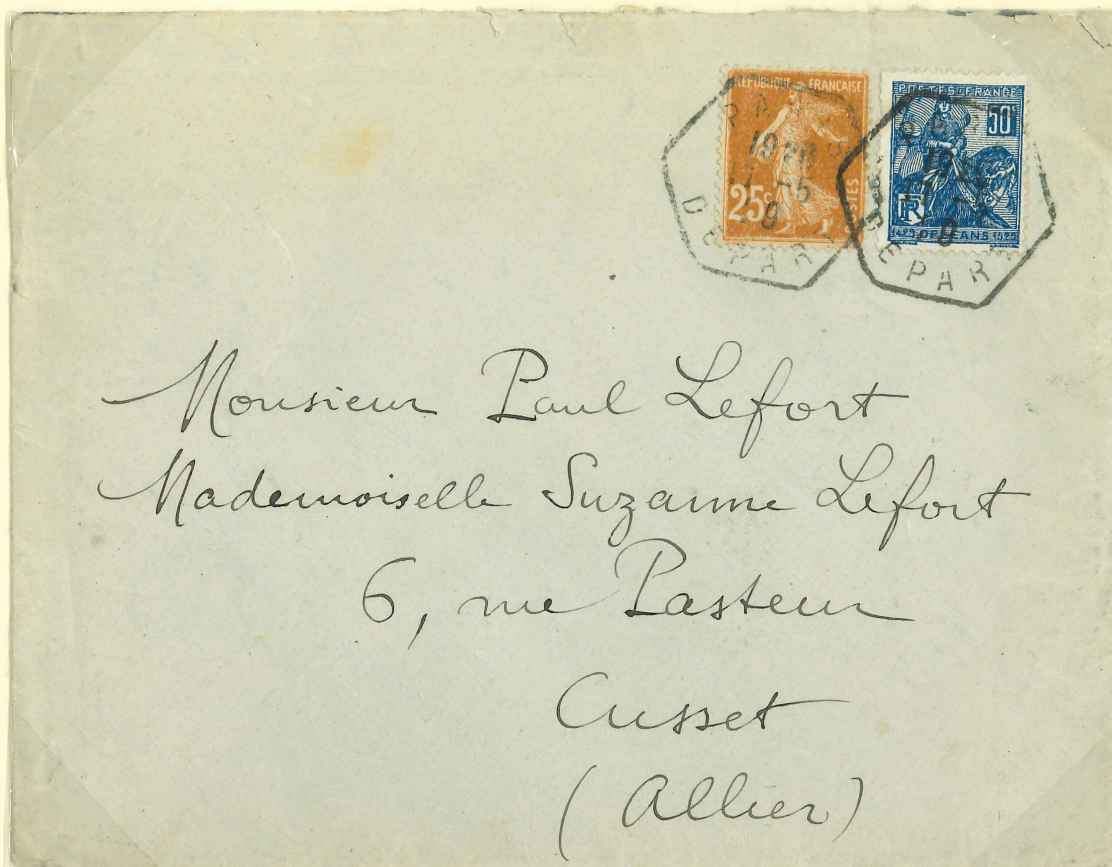 REPUBLIQUE FRANÇAISE
25c
POSTES
POSTES FRANCE
50c
RF
1429 ORLEANS 1929
PARIS
DEPART
DEPART
Monsieur Paul Lefort
Mademoiselle Suzanne Lefort
6, rue Pasteur
Cusset
(Allier)